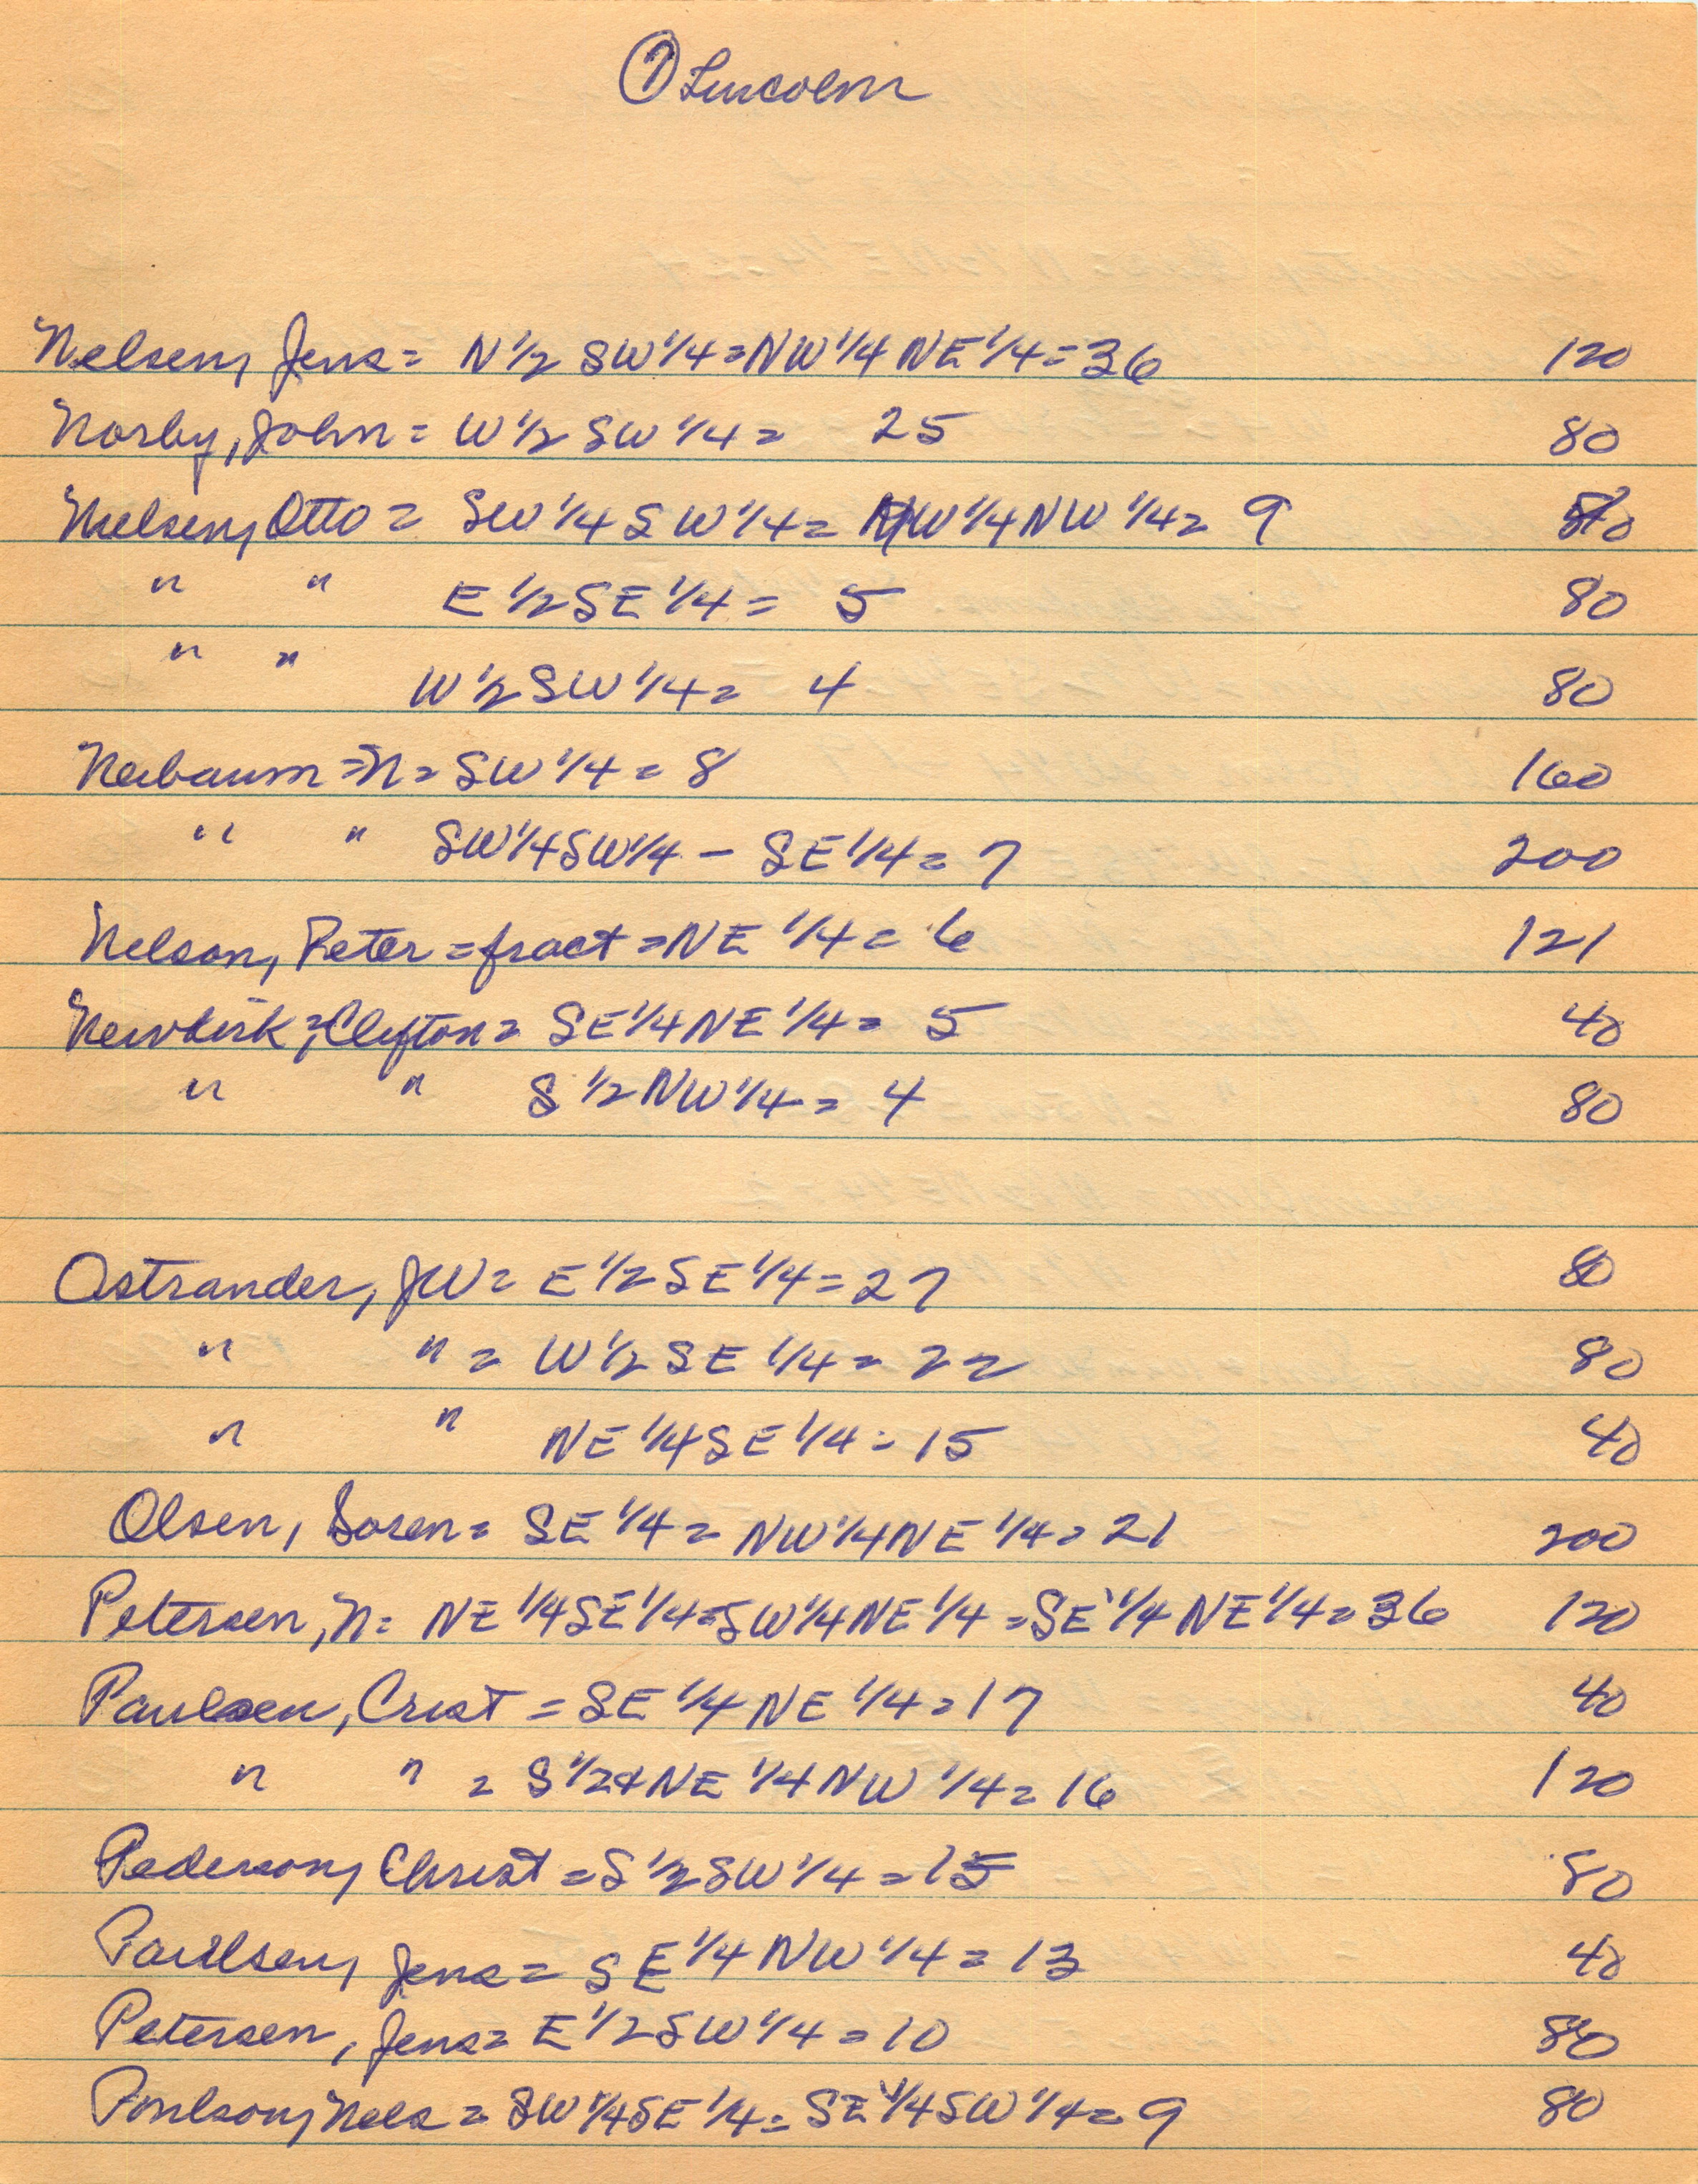 ⑦ Lincoln
Nelsen, Jens = N 1/2 SW 1/4 = NW 1/4 NE 1/4 = 36 120
Norby, John = W 1/2 SW 1/4 = 25 80
Nielsen, Otto = SW 1/4 SW 1/4 = NW 1/4 NW 1/4 = 9 80
" " E 1/2 SE 1/4 = 5 80
" " W 1/2 SW 1/4 = 4 80
Neibaum = N = SW 1/4 = 8 160
" " SW 1/4 SW 1/4 - SE 1/4 = 7 200
Nelson, Peter = fract = NE 1/4 = 6 121
Newkirk, Clifton = SE 1/4 NE 1/4 = 5 40
" " S 1/2 NW 1/4 = 4 80
Ostrander, JW = E 1/2 SE 1/4 = 27 80
" " = W 1/2 SE 1/4 = 22 80
" " NE 1/4 SE 1/4 = 15 40
Olsen, Soren = SE 1/4 = NW 1/4 NE 1/4 = 21 200
Petersen, N = NE 1/4 SE 1/4 = SW 1/4 NE 1/4 = SE 1/4 NE 1/4 = 36 120
Paulsen, Crist = SE 1/4 NE 1/4 = 17 40
" " = S 1/2 & NE 1/4 NW 1/4 = 16 120
Pederson, Christ = S 1/2 SW 1/4 = 15 80
Paulsen, Jens = SE 1/4 NW 1/4 = 13 40
Petersen, Jens = E 1/2 SW 1/4 = 10 80
Poulson, Nels = SW 1/4 SE 1/4 = SE 1/4 SW 1/4 = 9 80